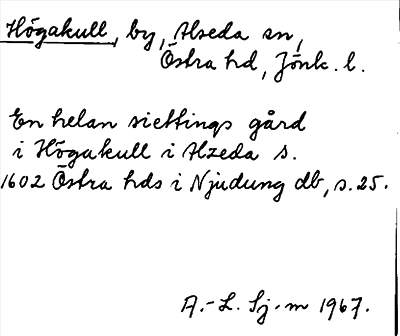 Högakull, by, Alseda sn,
Östra hd, Jönk. l.
En helan siettings gård
i Högakull i Alzeda s.
1602 Östra hds i Njudung db, s. 25.
A.-L. Sj-m 1967.